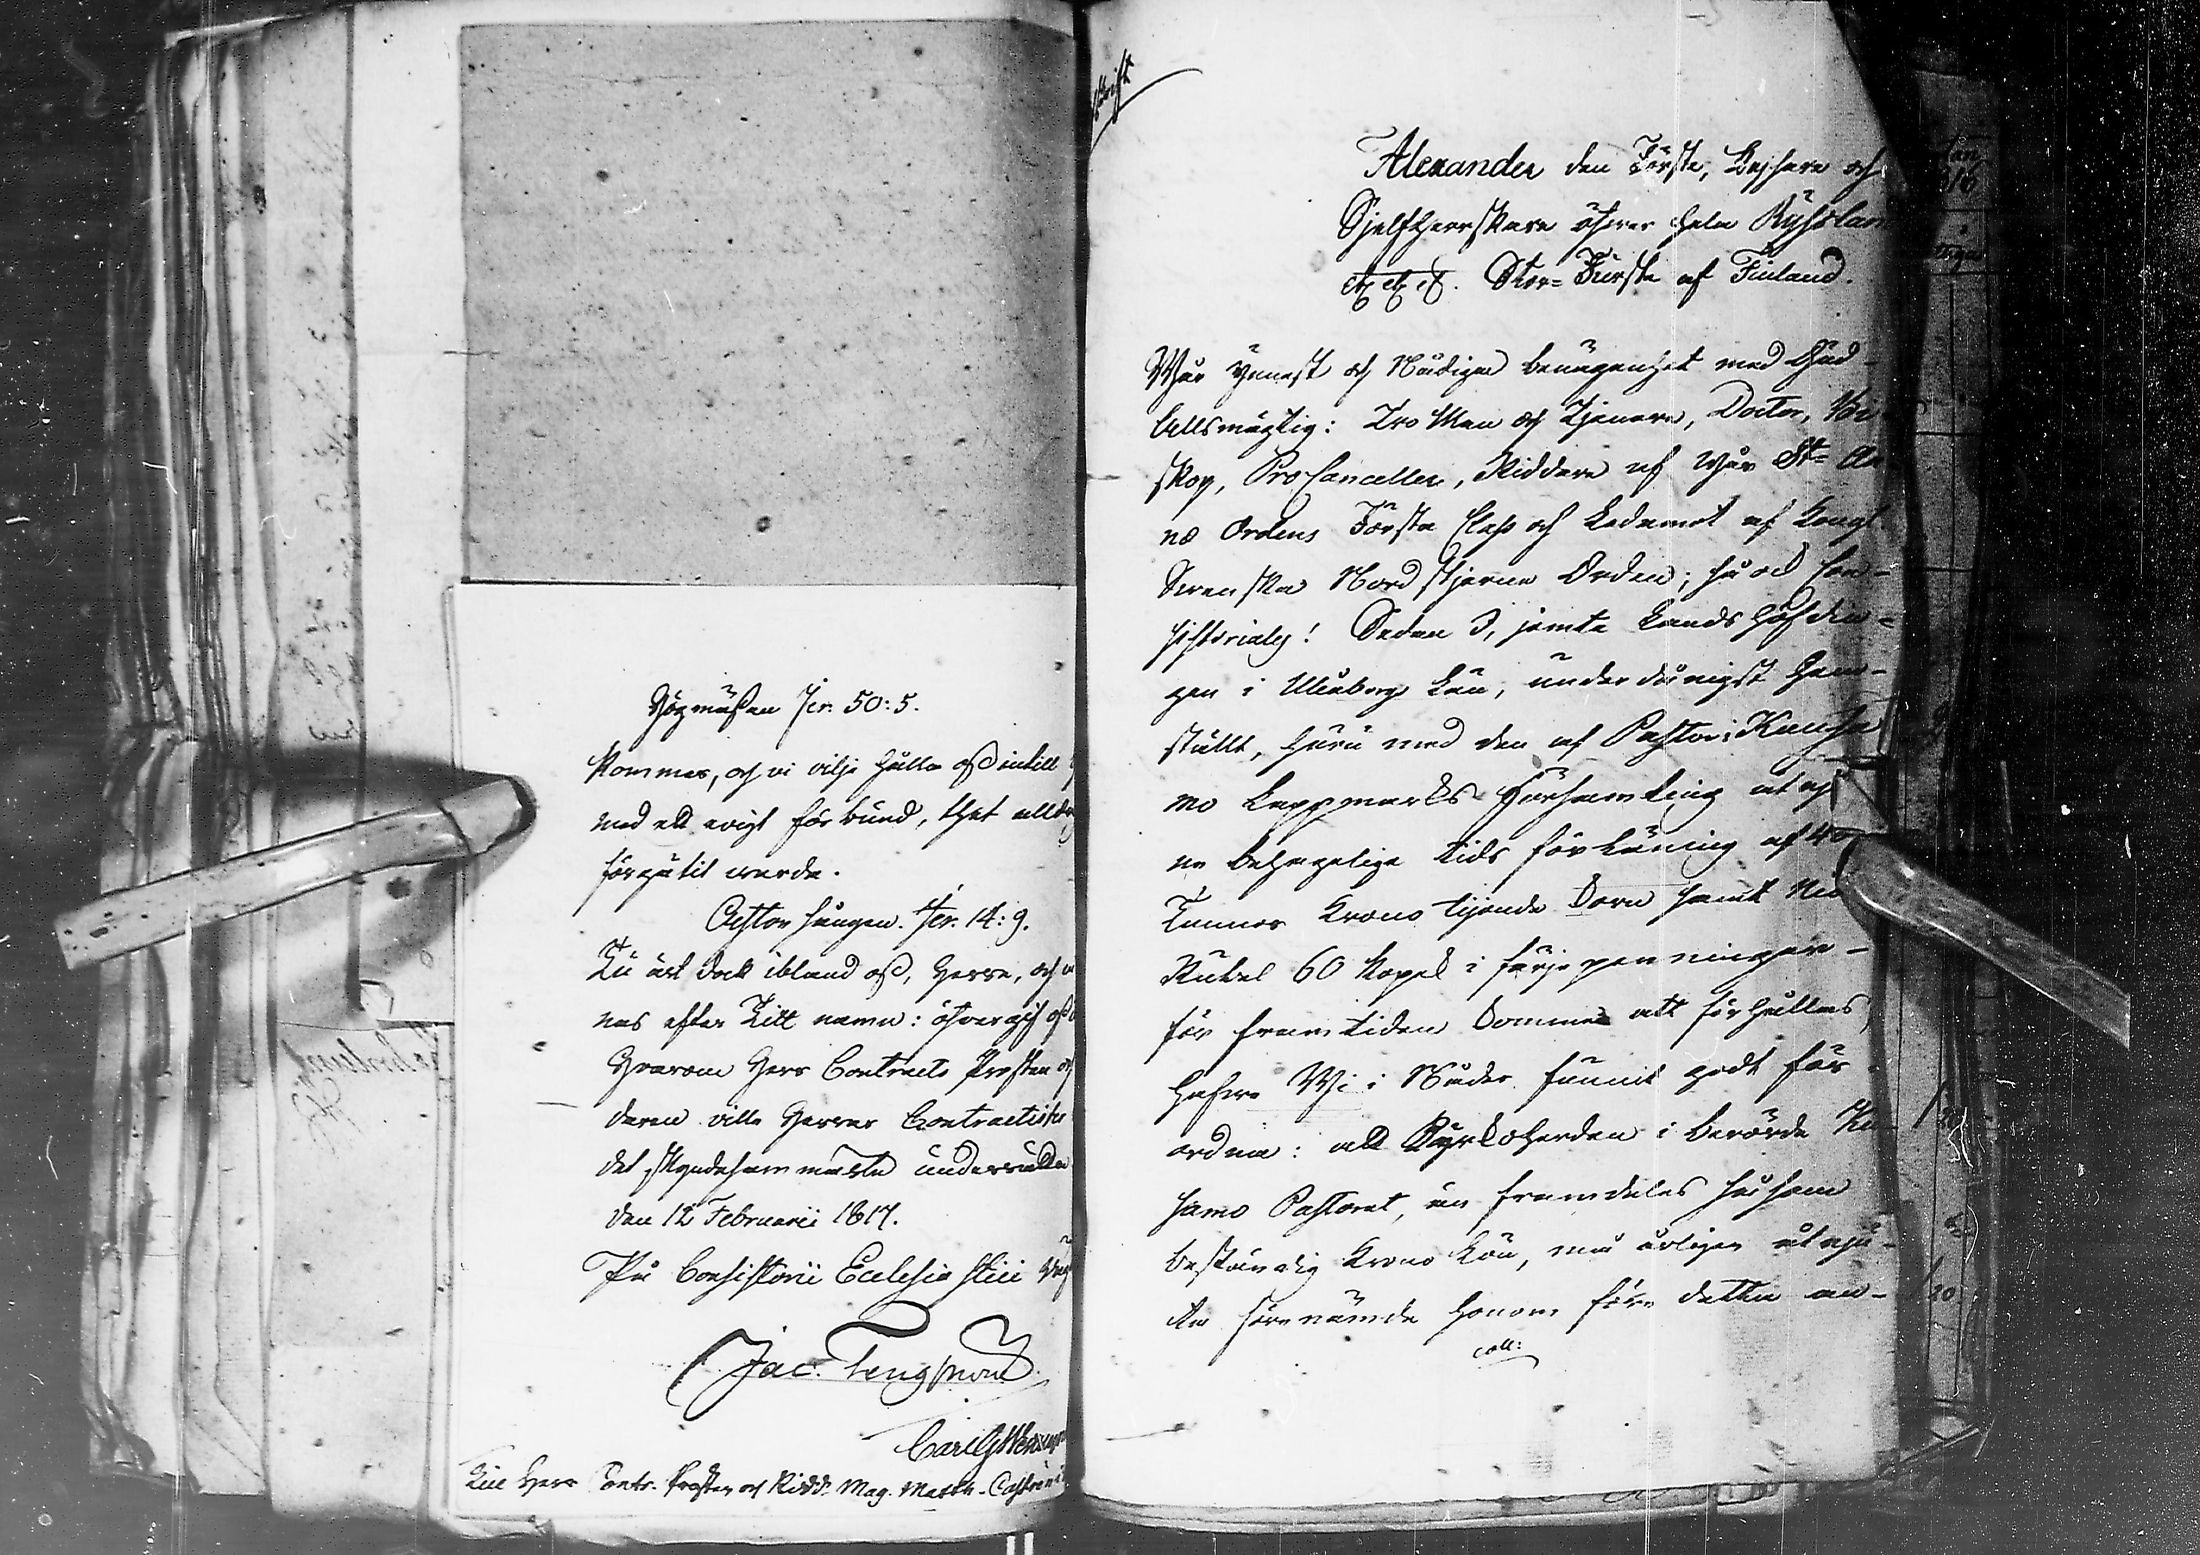 Högmässan Jer. 50:5.
kommer, och vi vilje hålla oss intill
med ett evigt förbund, thet alldrig
förgätit warda.
Aftonsången. Jer. 14:9.
Tu äst dock ibland oss, Herre, och
nes efter Titt namn: öfvergif oss
Hvarom Herr Contracts Prosten och
deren ville Herrar Contractister
det skyndesammaste underrätta
den 12 Februarii 1817.
På Consistorii Ecclesiastici Väg
Jac. Tengström
Till Herr Contr. Prosten och Ridd. Mag. Matth. Castrén
Alexander den Förste, Kejsare och
Sjelfherrskare öfver hela Ryssland
etc etc etc. Stor-Furste af Finland.
Vår ynnest och Nådiga benägenhet med Gud
Allsmägtig: Tro Man och Tjenare, Doctor, Bi-
skop, ProCanceller, Riddare af Vår St. An-
næ Ordens Första Class och Ledamot af Kongl.
Svenska Nordstjerne Orden; så ock Con-
sistoriales! Sedan I, jemte Landshöfdin-
gen i Uleåborgs Län, underdånigst hem-
ställt, huru med den af Pastor i Kuusa
mo Lappmarks Församling
ne behagelige tids förläning af 40
Tunnor Krono tijonde Korn samt
Rubel 60 Kopek i färjepenningar
för framtiden komme att förhållas,
hafve Vi i Nåder funnit godt för
ordna: att Kyrkoherden i berörde Ku-
samo Pastorat, än framdeles såsom
beständig Krono Lön, må årligen åtnju-
ta förenämde honom före detta an-
coll: